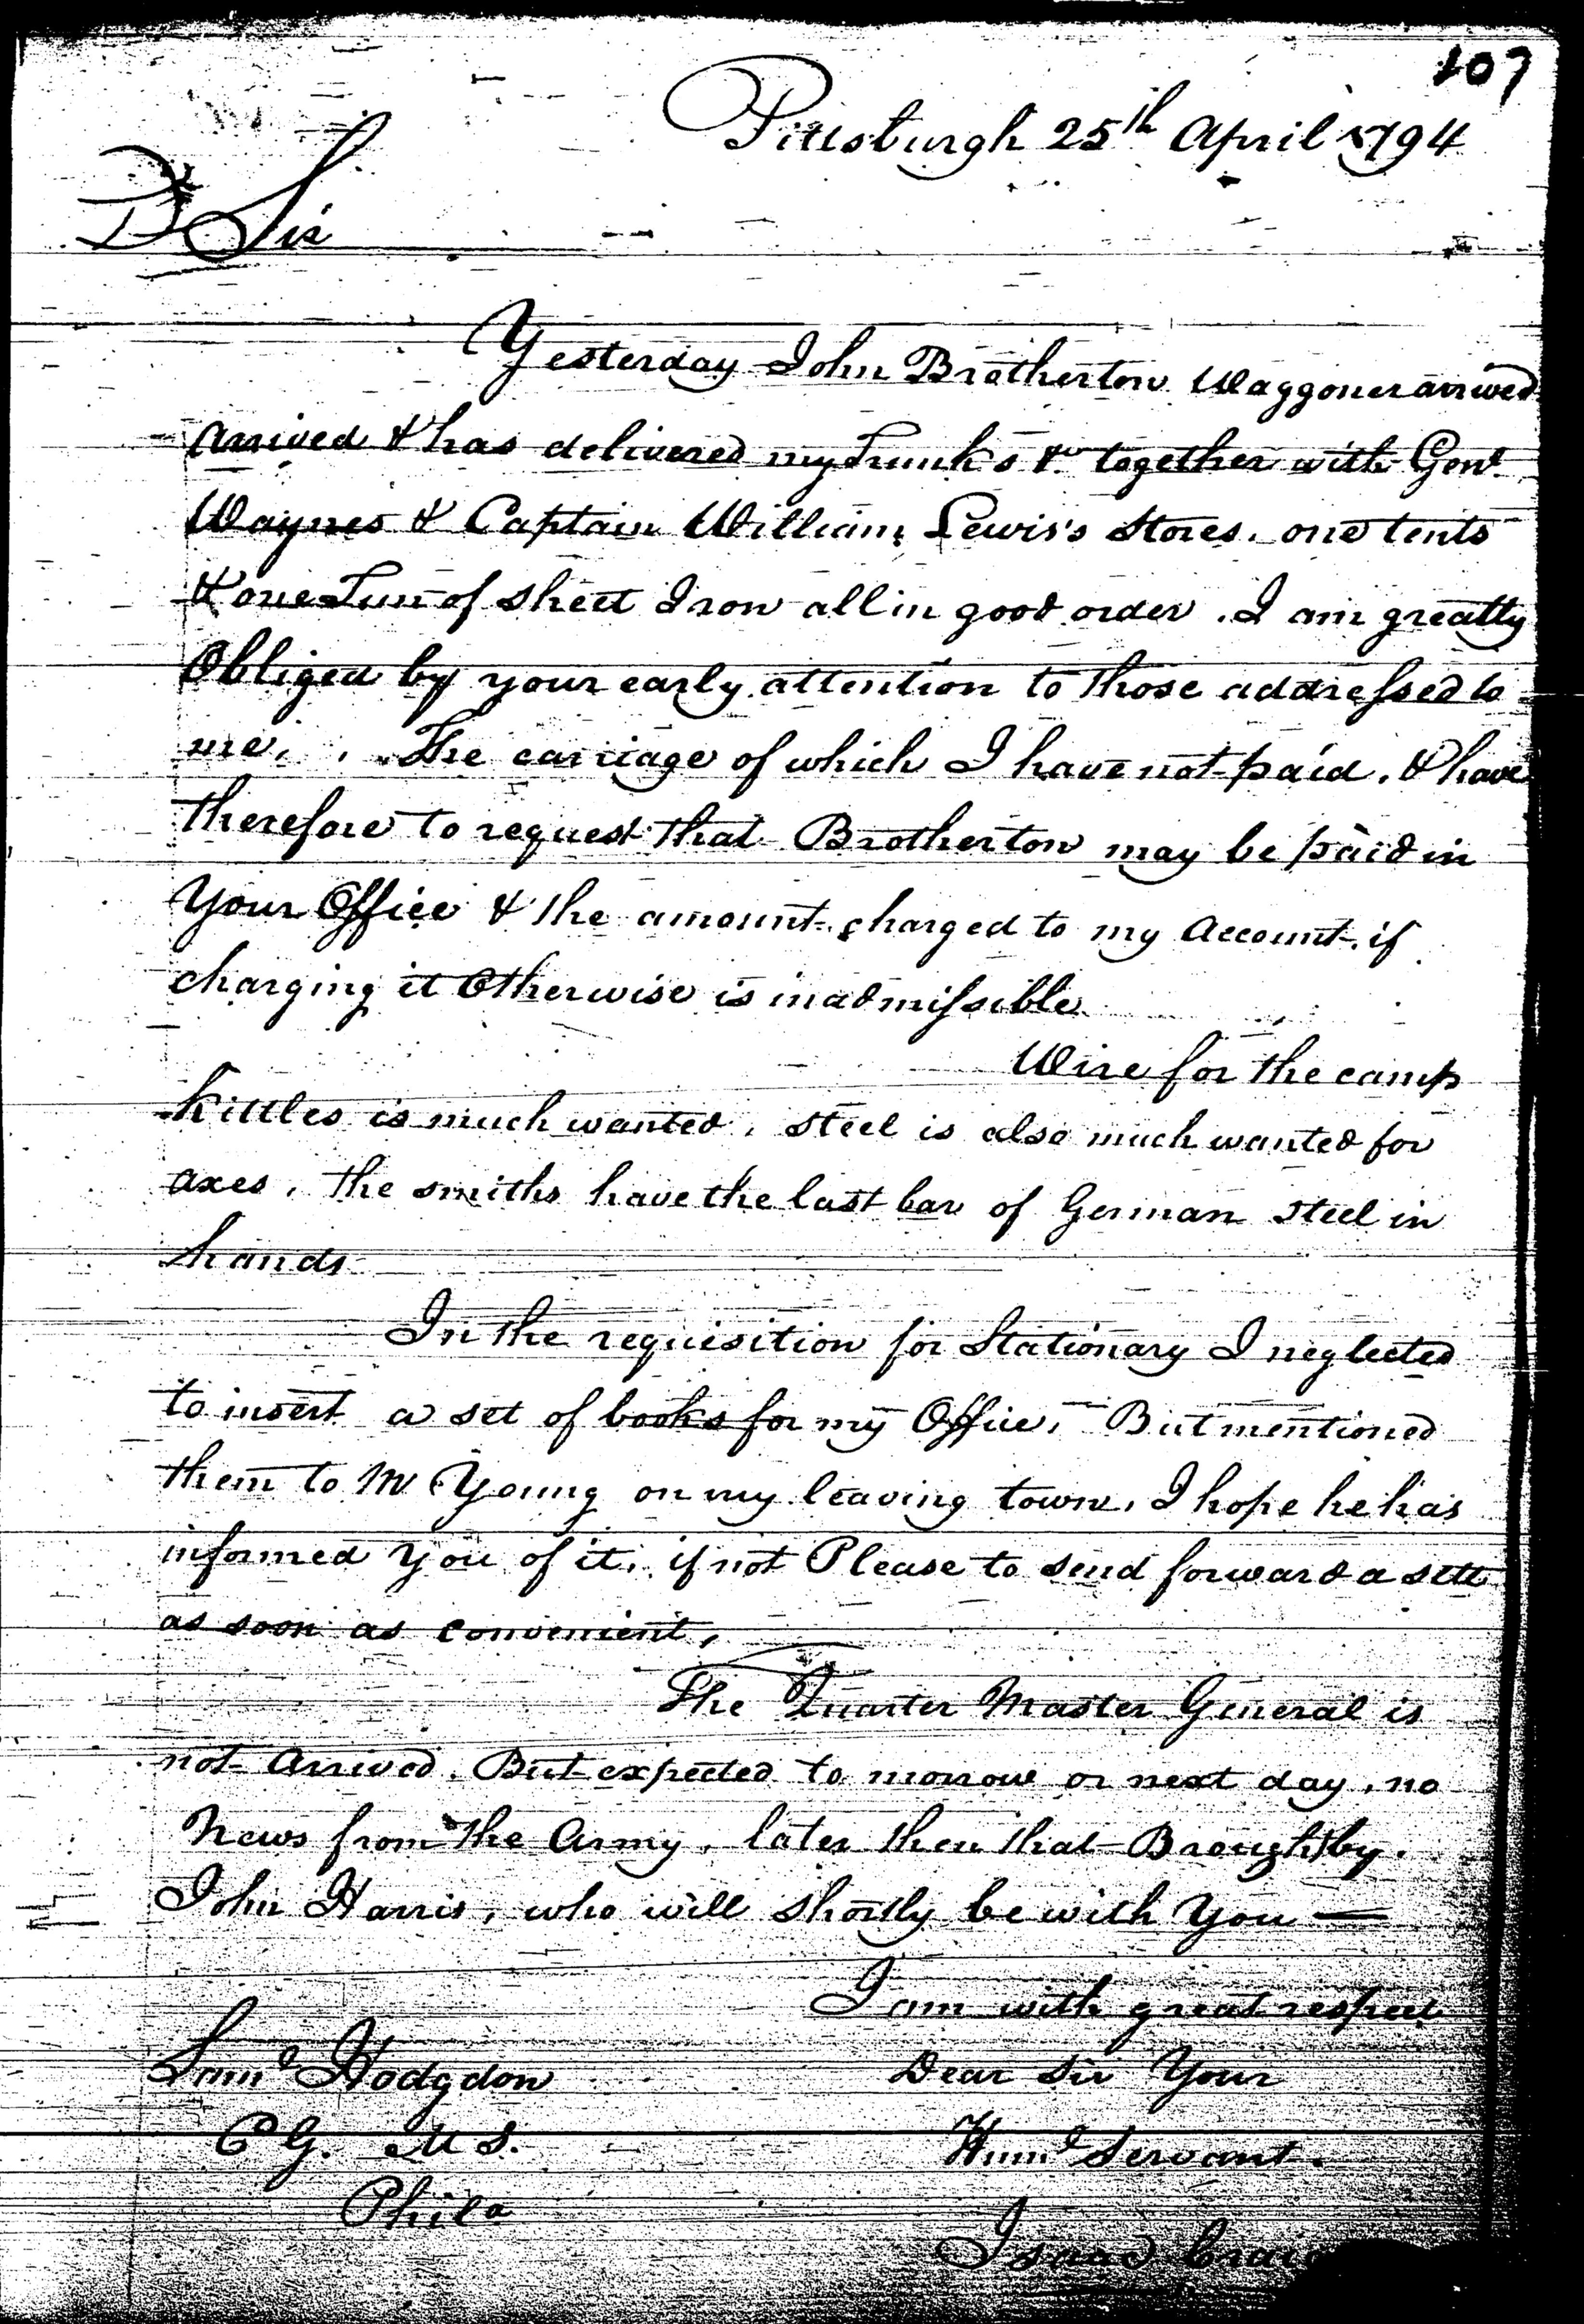 107
Pittsburgh 25th April 1794
D Sir
Yesterday John Brotherton Waggoner arrived
arrived & has delivered my Trunks &c together with Genl
Waynes & Captain William Lewis's Stores, one tents
& one Tun of sheet Iron all in good order. I am greatly
Obliged by your early attention to those addressed to
me, The carriage of which I have not paid, & have
therefore to request that Brotherton may be paid in
Your Office & the amount charged to my Account, if
charging it Otherwise is inadmissible
Wire for the camp
Kittles is much wanted, steel is also much wanted for
axes, the smiths have the last bar of German steel in
hands
In the requisition for Stationary I neglected
to insert a set of books for my Office, But mentioned
them to Mr Young on my leaving town, I hope he has
informed You of it, if not Please to send forward a sett
as soon as convenient,
The Quarter Master General is
not Arrived. But expected to morrow or next day, no
News from the Army, later then that Brought by
John Harris, who will shortly be with You —
I am with great respect
Saml Hodgdon
Dear Sir Your
M S.
Huml Servant
Phila
Isaac Craig